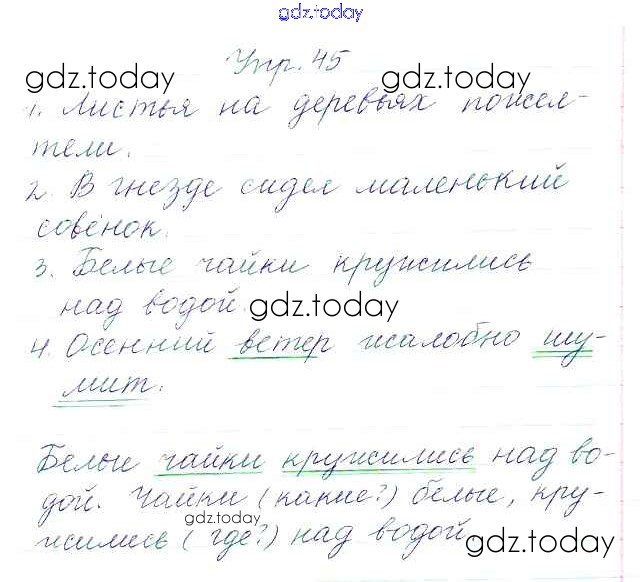 gdz.today
Упр. 45
gdz.today gdz.today
1. Листья на деревьях пожел-
тели.
2. В гнезде сидел маленький
совёнок.
3. Белые чайки кружились
над водой. gdz.today
4. Осенний ветер жалобно шу-
мит.
Белые чайки кружились над во-
дой. Чайки (какие?) белые, кру-
gdz.today
жились (где?) над водой. gdz.today